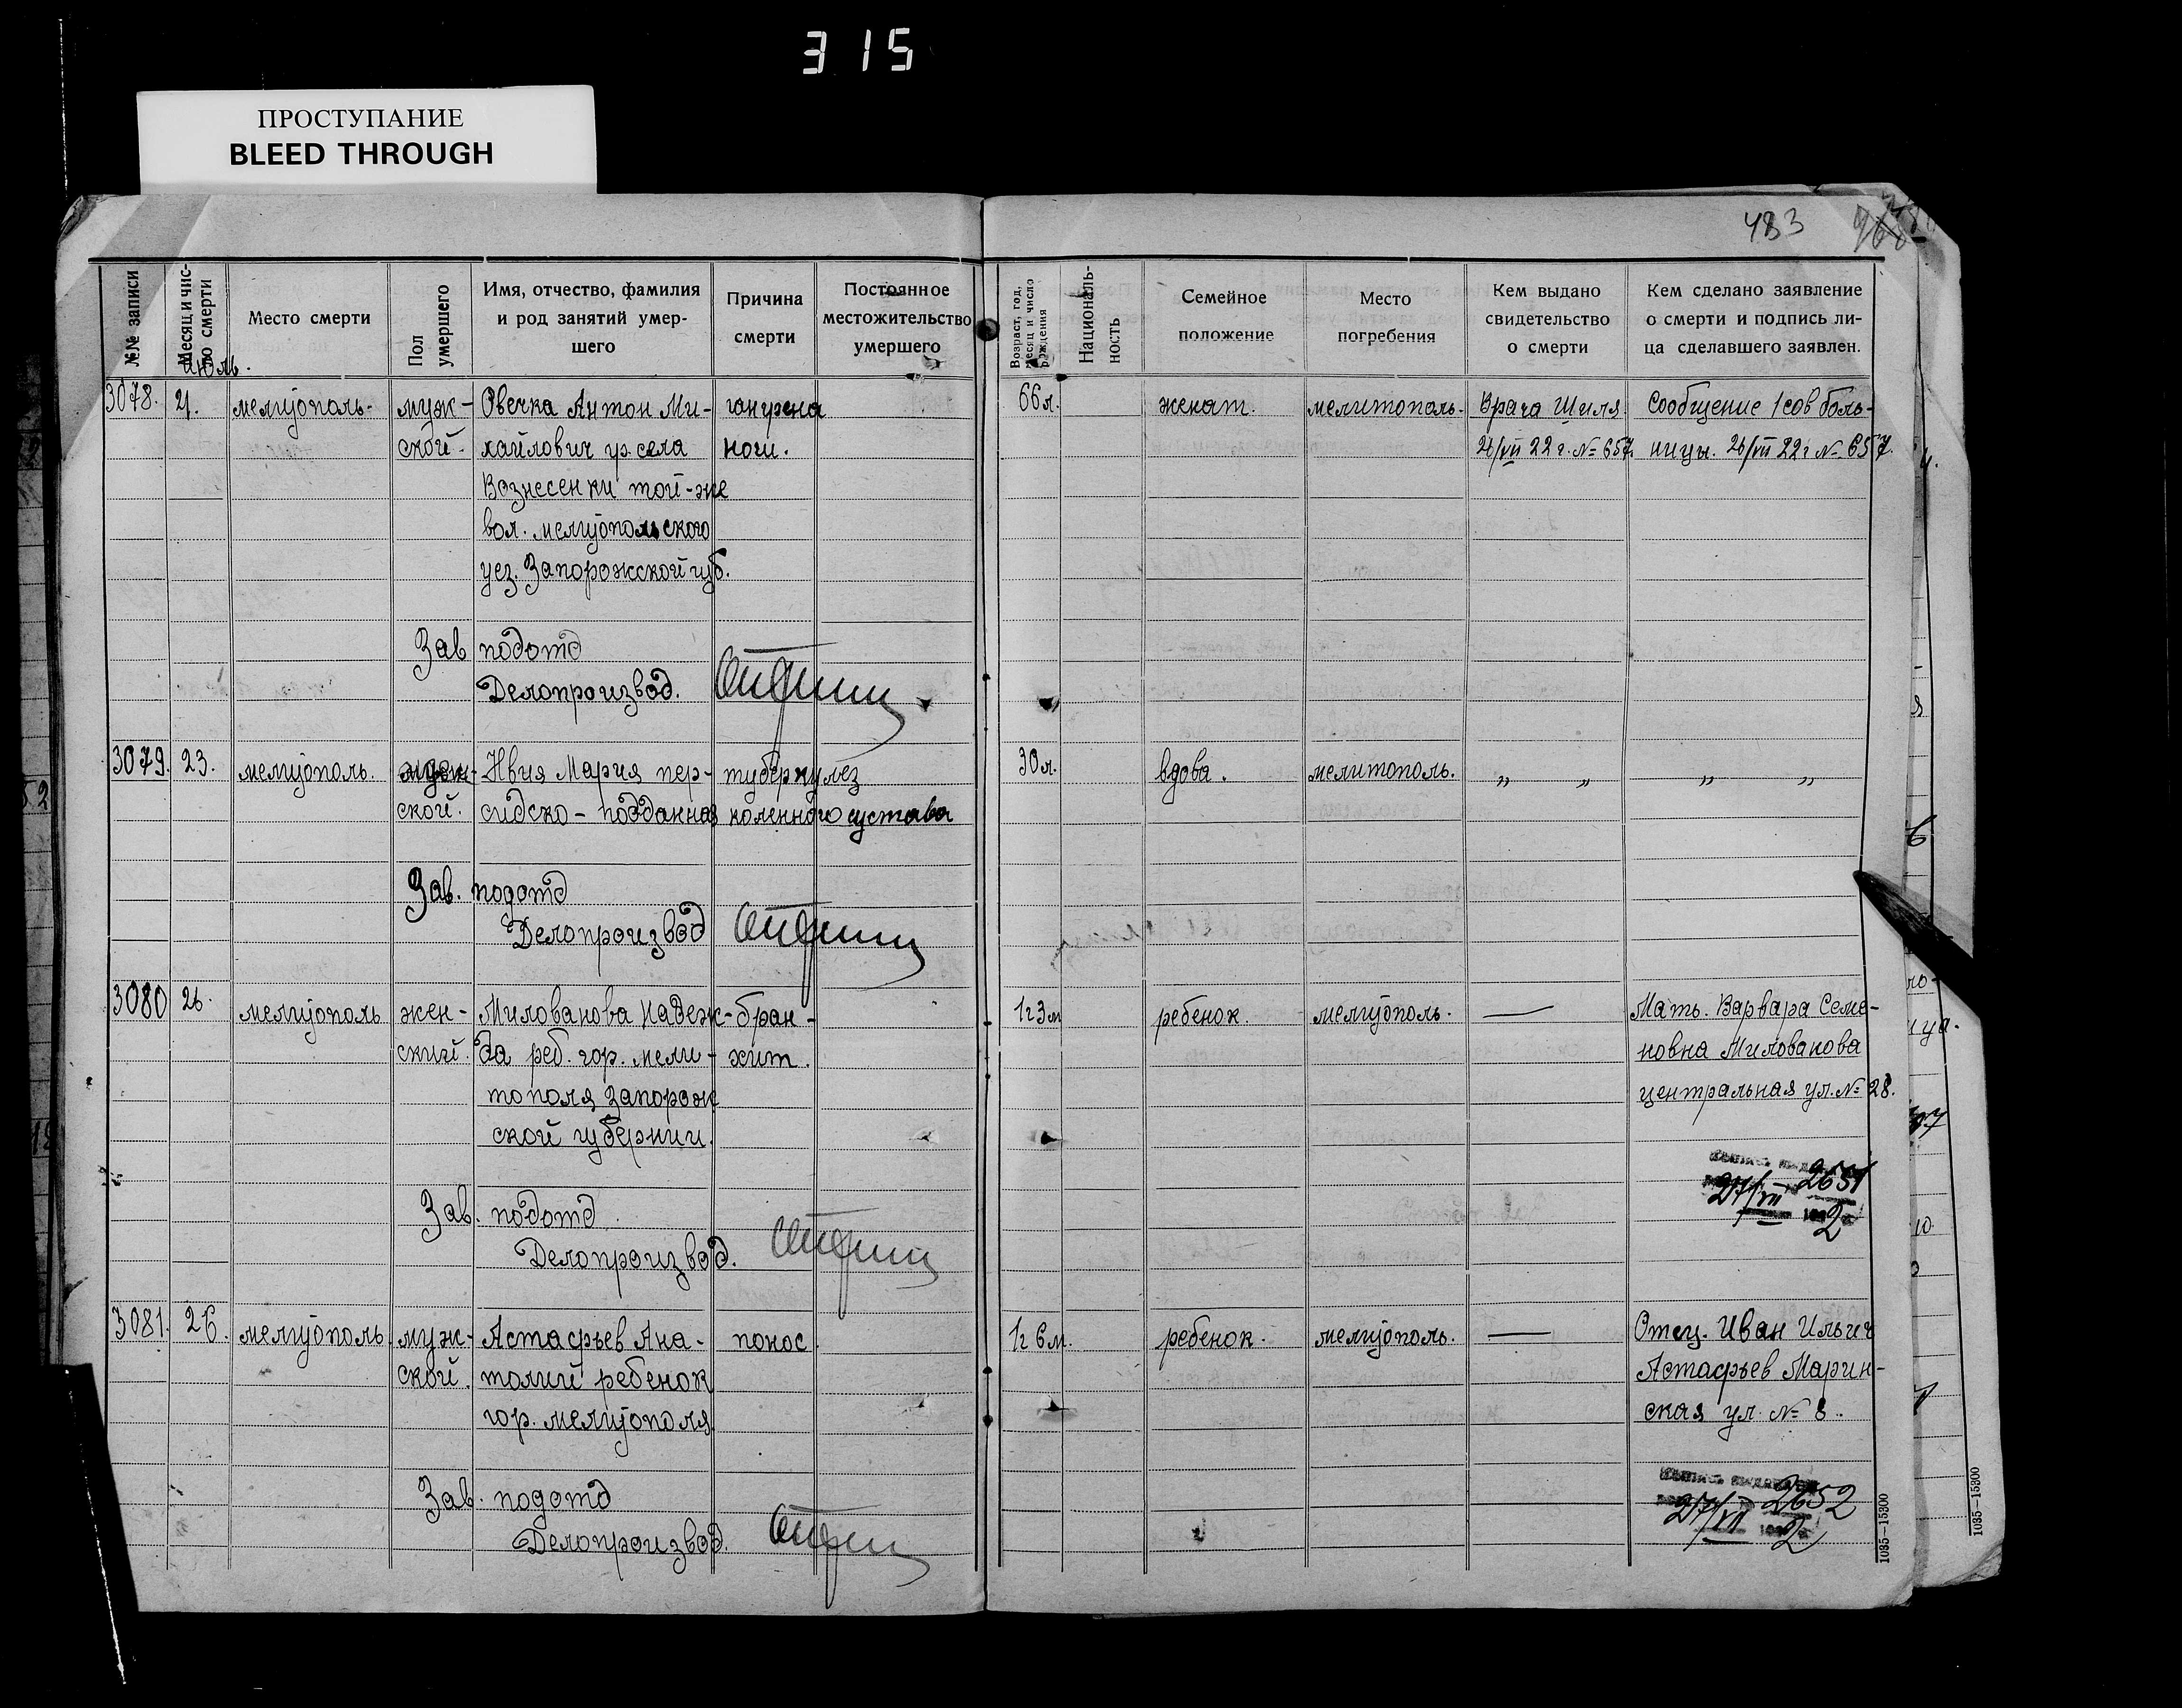 315
ПРОСТУПАНИЕ
BLEED THROUGH
483
№№ записи
Месяц и чис-
ло смерти
Место смерти
Пол
умершего
Имя, отчество, фамилия
и род занятий умер-
шего
Причина
смерти
Постоянное
местожительство
умершего
Возраст, год,
месяц и число
рождения
Националь-
ность
Семейное
положение
Место
погребения
Кем выдано
свидетельство
о смерти
Кем сделано заявление
о смерти и подпись ли-
ца сделавшего заявлен.
июль.
3078. 21. мелитополь. муж- Овечка Антон Ми- гангрена 66 л. женат. мелитополь. Врача Шиля Сообщение 1 сов боль-
ской. хайлович гр. села ноги. 26/VII 22 г. № 657. ницы. 26/VII 22 г № 657.
Вознесенки той-же
вол. мелитопольского
уез. Запорожской губ.
Зав подотд
Делопроизвод.
3079. 23. мелитополь. муж- Мария пер- туберкулез 30 л. вдова. мелитополь. „ „ „ „
ской. сидско-подданная коленного сустава
Зав. подотд
Делопроизвод
3080 26. мелитополь жен- Милованова Надеж- брон- 1 г 3 м ребенок. мелитополь. — Мать. Варвара Семе-
ский. да реб. гор. мели- хит. новна Милованова
тополя Запорож центральная ул. № 28.
ской губернии.
27/VII 2651
2
Зав. подотд
Делопроизвод.
3081. 26. мелитополь. муж- Астафьев Ана- понос. 1 г 6 м. ребенок. мелитополь. — Отец. Иван Ильич
ской. толий ребенок Астафьев Марин-
гор. мелитополя. ская ул. № 8.
Зав. подотд
27/VII 2652
2
Делопроизвод.
1035—15300
1035—15300